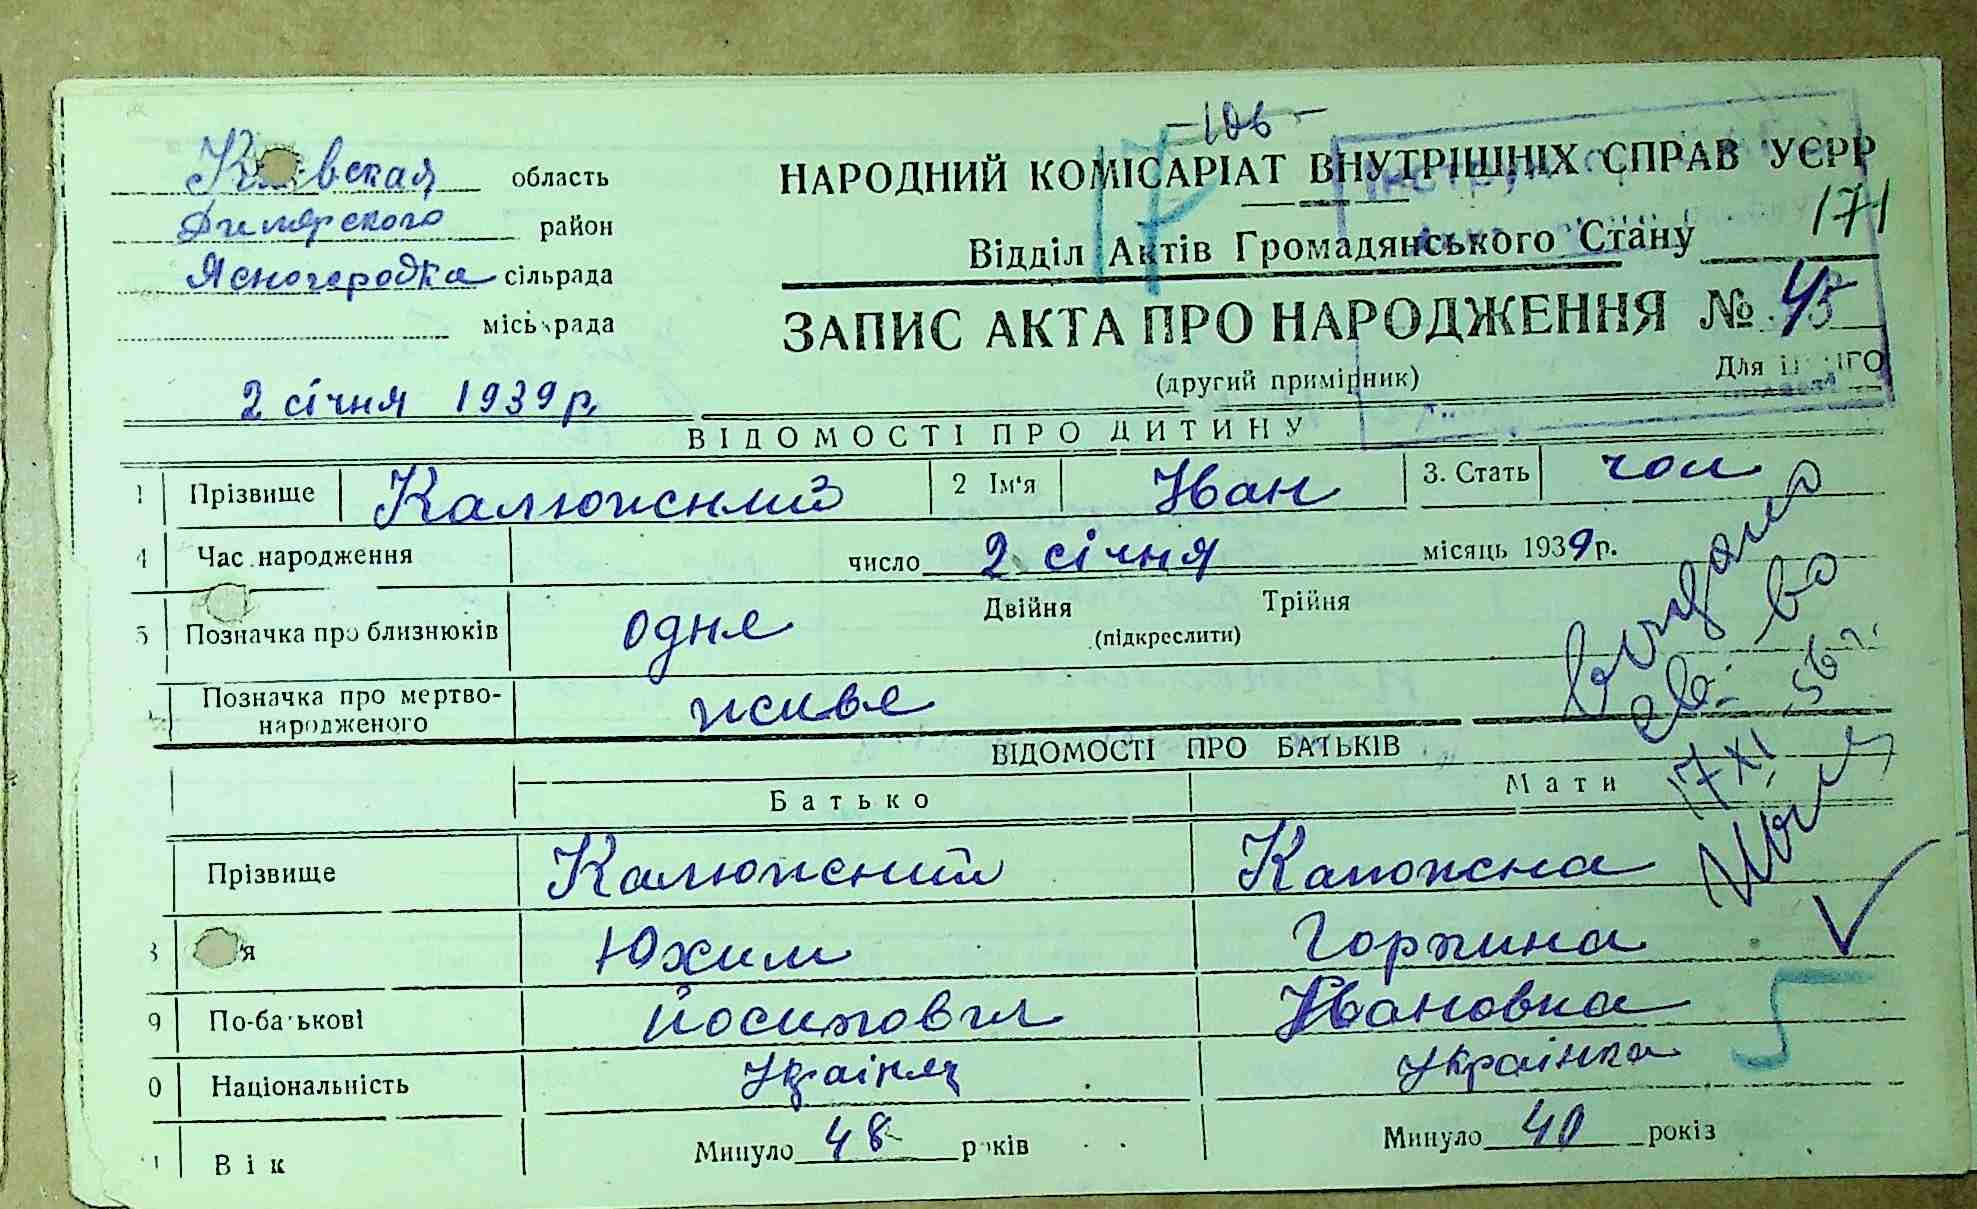 -106-
Київская область
НАРОДНИЙ КОМІСАРІАТ ВНУТРІШНІХ СПРАВ УСРР
Димярского район
17
171
Ясногородка сільрада
Відділ Актів Громадянського Стану
міськрада
ЗАПИС АКТА ПРО НАРОДЖЕННЯ № 45
(другий примірник)
Для
2 січня 1939 р.
ВІДОМОСТІ ПРО ДИТИНУ
1 Прізвище Калюжний 2 Ім'я Іван 3. Стать чол
4 Час народження число 2 січня місяць 1939 р.
5 Позначка про близнюків одне Двійня Трійня
(підкреслити)
Позначка про мертвонародженого живе
Выдано
св-во
17 XI 56 г.
ВІДОМОСТІ ПРО БАТЬКІВ
Батько Мати
Прізвище Калюжний Калюжна
8 'я Юхим Горпина
9 По-батькові Йосипович Івановна
5
0 Національність Українец Українка
Вік Минуло 48 років Минуло 40 років